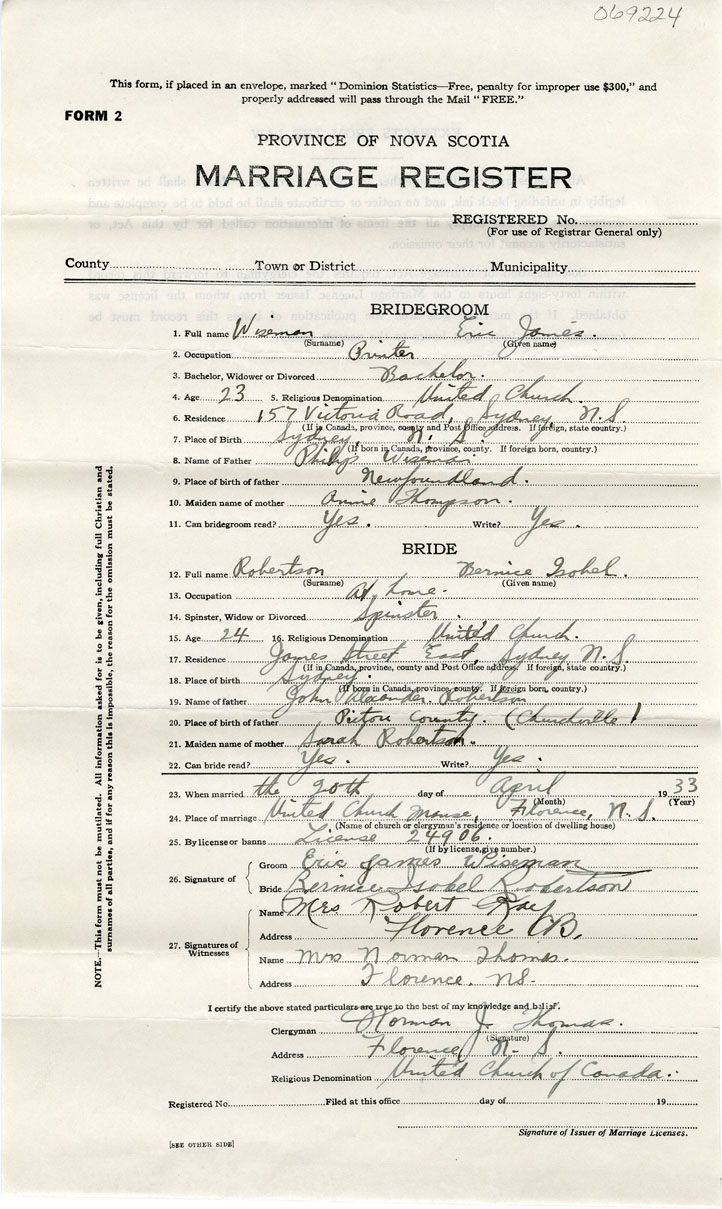 069224
This form, if placed in an envelope, marked "Dominion Statistics—Free, penalty for improper use $300," and
properly addressed will pass through the Mail "FREE."
FORM 2
PROVINCE OF NOVA SCOTIA
MARRIAGE REGISTER
REGISTERED No.
(For use of Registrar General only)
County Town or District Municipality
BRIDEGROOM
1. Full name Wiseman Eric James.
(Surname) (Given name)
2. Occupation Printer
3. Bachelor, Widower or Divorced Bachelor.
4. Age 23 5. Religious Denomination United Church.
6. Residence 157 Victoria Road, Sydney, N.S.
(If in Canada, province, county and Post Office address. If foreign, state country.)
7. Place of Birth Sydney, N. S
(If born in Canada, province, county. If foreign born, country.)
8. Name of Father Philip Wiseman
9. Place of birth of father Newfoundland.
10. Maiden name of mother Annie Thompson.
11. Can bridegroom read? Yes. Write? Yes.
BRIDE
12. Full name Robertson Bernice Isobel.
(Surname) (Given name)
13. Occupation At home.
14. Spinster, Widow or Divorced Spinster.
15. Age 24 16. Religious Denomination United Church.
17. Residence James Street East, Sydney N.S.
(If in Canada, province, county and Post Office address. If foreign, state country.)
18. Place of birth Sydney.
(If born in Canada, province, county. If foreign born, country.)
19. Name of father John Alexander Robertson
20. Place of birth of father Pictou County. (Churchville)
21. Maiden name of mother Sarah Robertson.
22. Can bride read? Yes. Write? Yes.
23. When married the 20th day of April 1933
(Month) (Year)
24. Place of marriage United Church Manse, Florence, N.S.
(Name of church or clergyman's residence or location of dwelling house)
25. By license or banns License 24906.
(If by license, give number.)
26. Signature of
Groom Eric James Wiseman
Bride Bernice Isobel Robertson
27. Signatures of Witnesses
Name Mrs Robert
Address Florence CB.
Name Mrs Norman Thomas.
Address Florence. NS.
I certify the above stated particulars are true to the best of my knowledge and belief.
Clergyman Norman J. Thomas.
(Signature)
Address Florence N. S.
Religious Denomination United Church of Canada.
Registered No. Filed at this office day of 19
Signature of Issuer of Marriage Licenses.
[SEE OTHER SIDE]
NOTE.—This form must not be mutilated. All information asked for is to be given, including full Christian and
surnames of all parties, and if for any reason this is impossible, the reason for the omission must be stated.